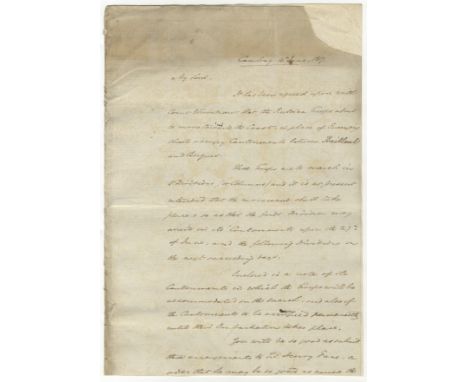 Cambray 4 June 1817
My Lord.
It has been agreed upon with
Count Woronzow that the Russian Troops about
to march to the Coast, in place of
shall occupy Cantonments between Bailleul
and Bergues.
That Troops are to march in
Divisions, or Columns; and it is at present
intended that the movement shall take
place so as that the first Division may
arrive in its Cantonments upon the 27th
of June, and the following Divisions on
the next succeeding days.
Enclosed is a note of the
Cantonments in which the Troops will be
accommodated on the march; and also of
the Cantonments to be occupied permanently
until their Embarkation takes place.
You will be so good as submit
these arrangements to Lt. Henry Fane. in
order that he may be so good as cause the